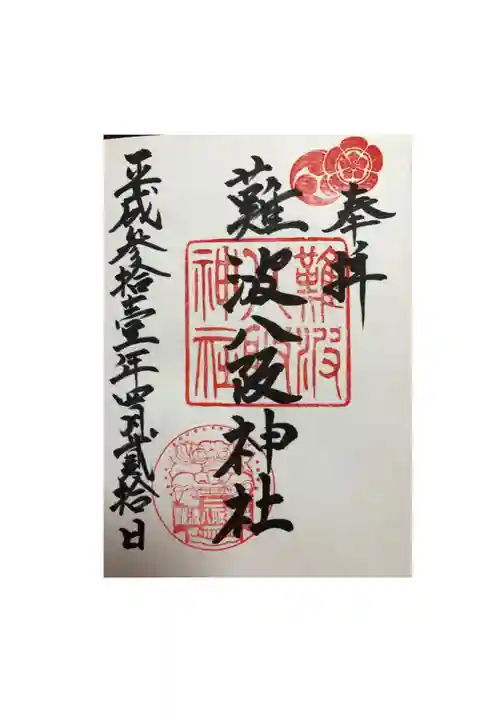 奉拝
難波八阪神社
難波
八阪
神社
平成参拾壹年四月貳拾日
難波八阪